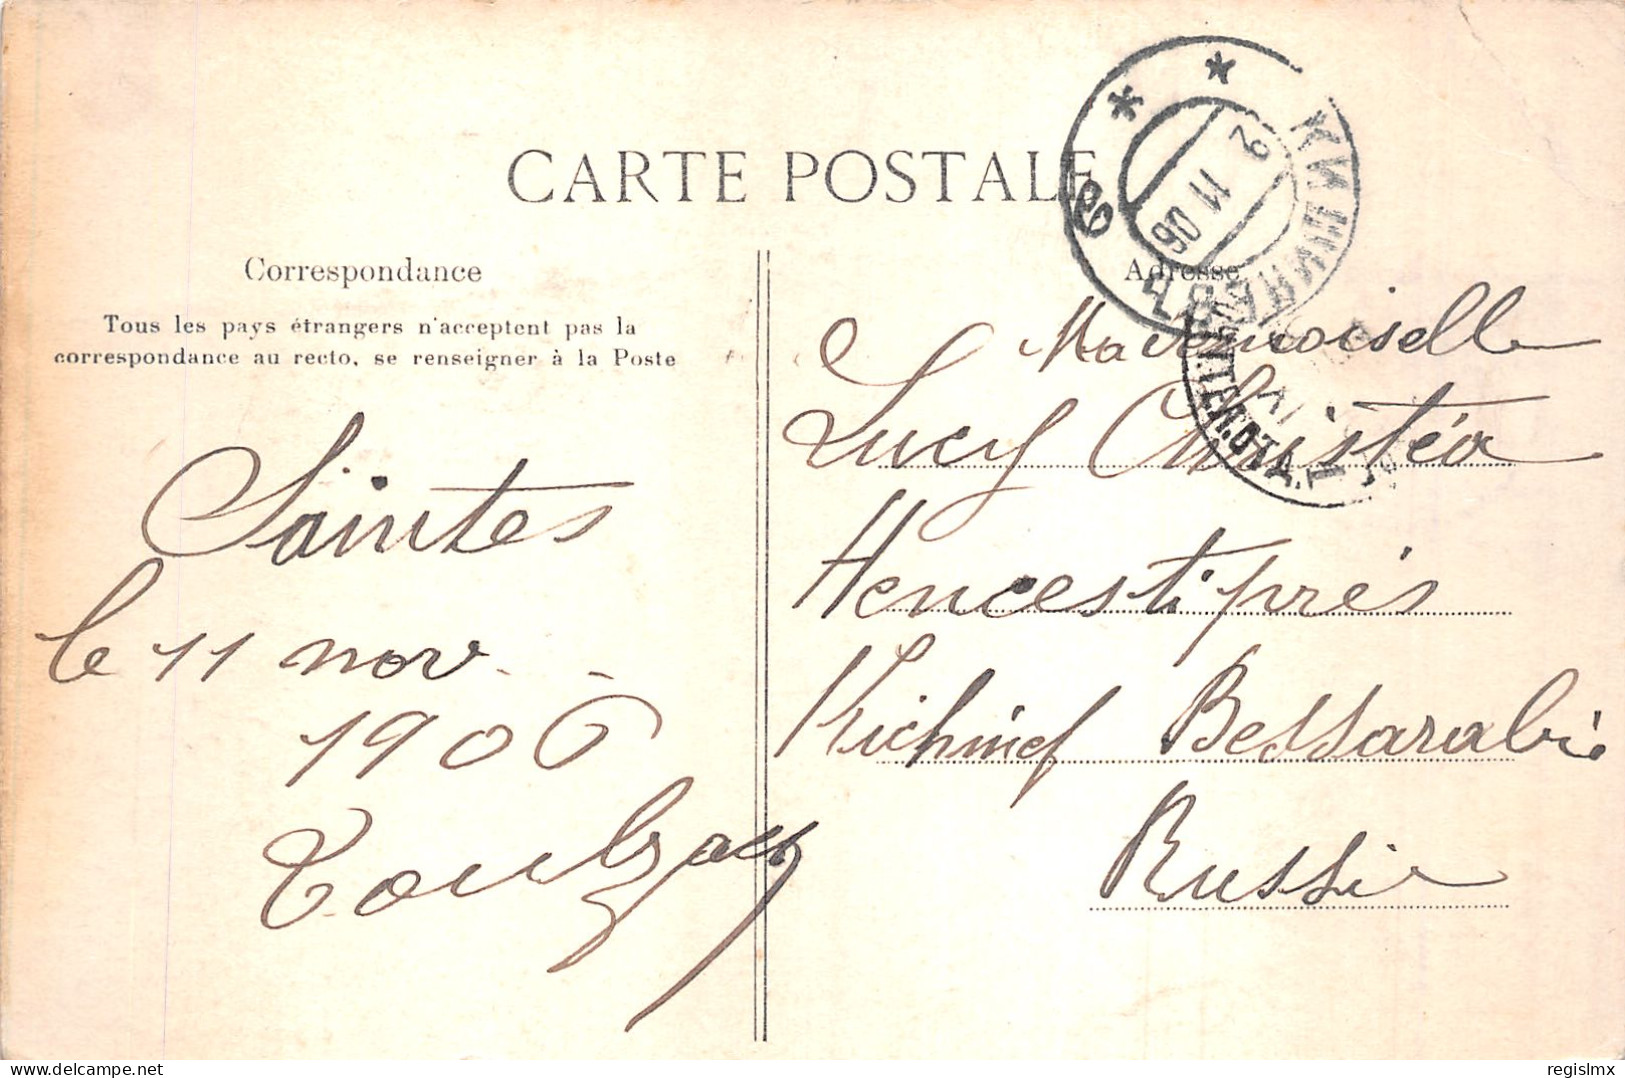 CARTE POSTALE
Correspondance
Tous les pays étrangers n'acceptent pas la
correspondance au recto, se renseigner à la Poste
Saintes
le 11 nov.
1906
Adresse
Mademoiselle
Lucy Christéa
Hencesti près
Kichinef Bessarabie
Russie
КИШИНЕВЪ
2 11 06
regislmx